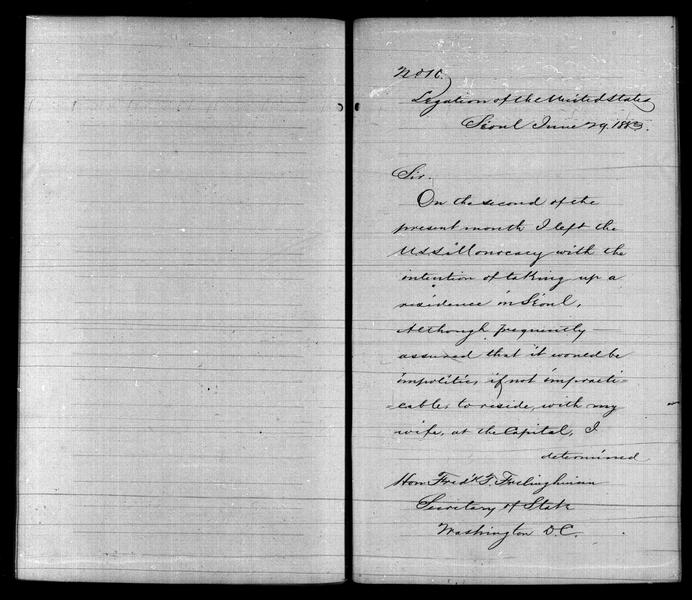 No 10.
Legation of the United States
Séoul June 29. 1883.
Sir.
On the second of the
present month I left the
U.S.S. "Monocacy with the
intention of taking up a
residence in Séoul.
Although frequently
assured that it would be
impolitic, if not impracti-
-cable, to reside, with my
wife, at the Capital, I
determined
Hon Fredk T. Frelinghuysen
Secretary of State
Washington D.C.